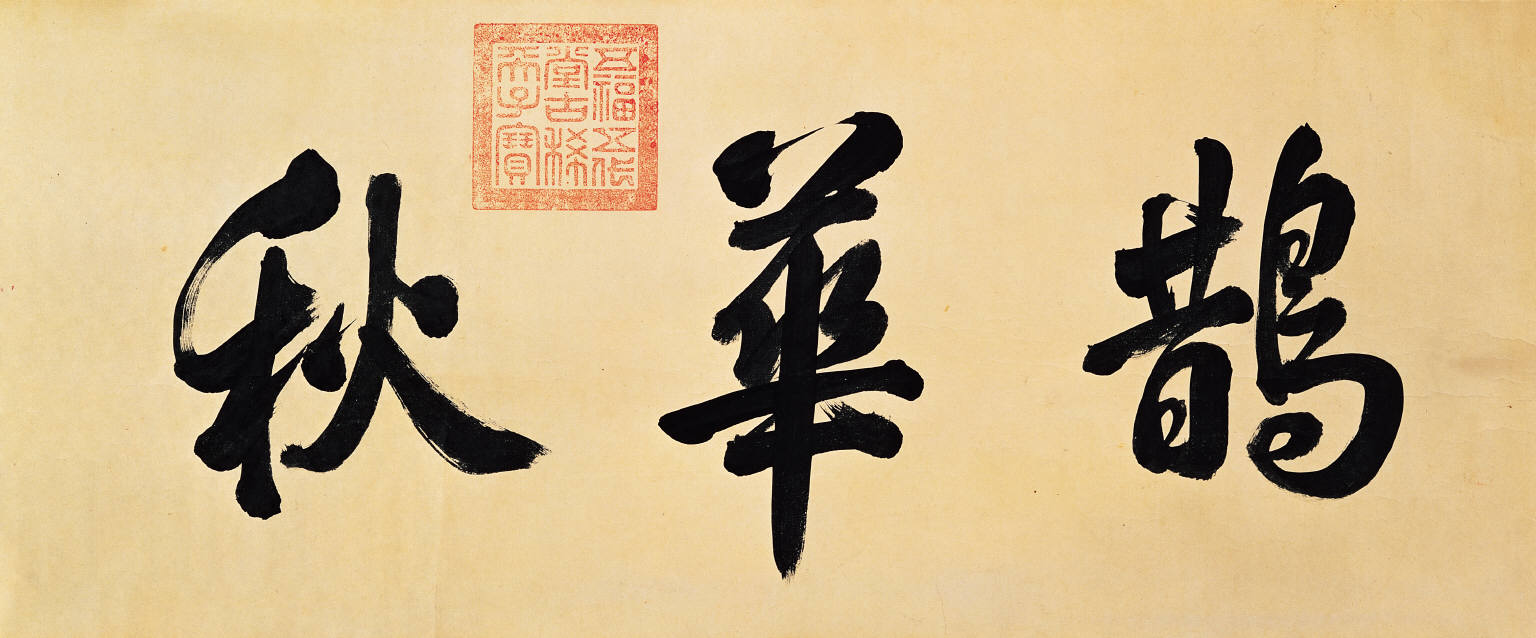 鵲華秋
五福五代
堂古稀
天子寶